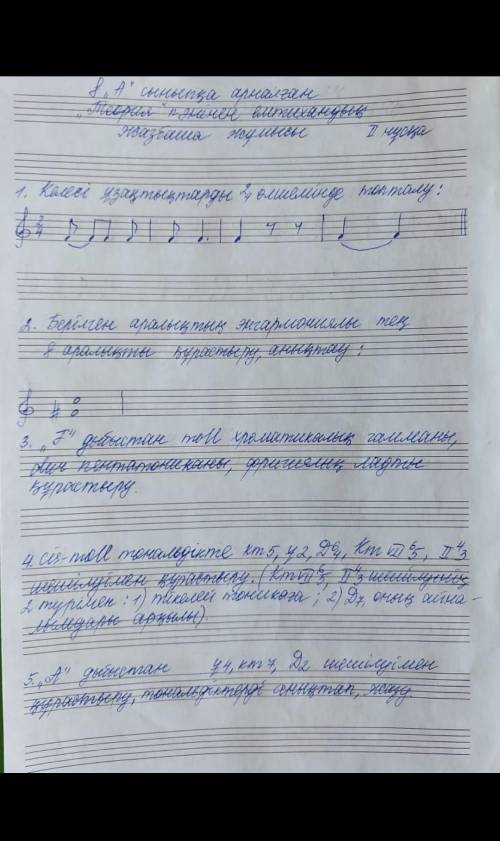 8 „А" сыныпқа арналған
„Теория" пәнінен емтихандық
жазбаша жұмысы II нұсқа
1. Келесі ұзақтықтарды 2/4 өлшемінде топтау:
2. Берілген аралықтың энгармониялы тең
8 аралықты құрастыру, анықтау:
3. „F" дыбыстан moll хроматикалық гамманы,
пентатониканы, фригиялық ладты
құрастыру.
4. cis-moll тональдікте кт5, ұ2, Кт VII 6/5, II 4/3
шешілуімен құрастыру. (Кт VII 6/5, II 4/3 шешілуінің
2 түрімен: 1) тікелей тоникаға; 2) D7, оның айна-
лымдары арқылы).
5. „А" дыбыстан ұ4, кт7, D2 шешілуімен
құрастыру, тональдіктерді анықтап, жазу.